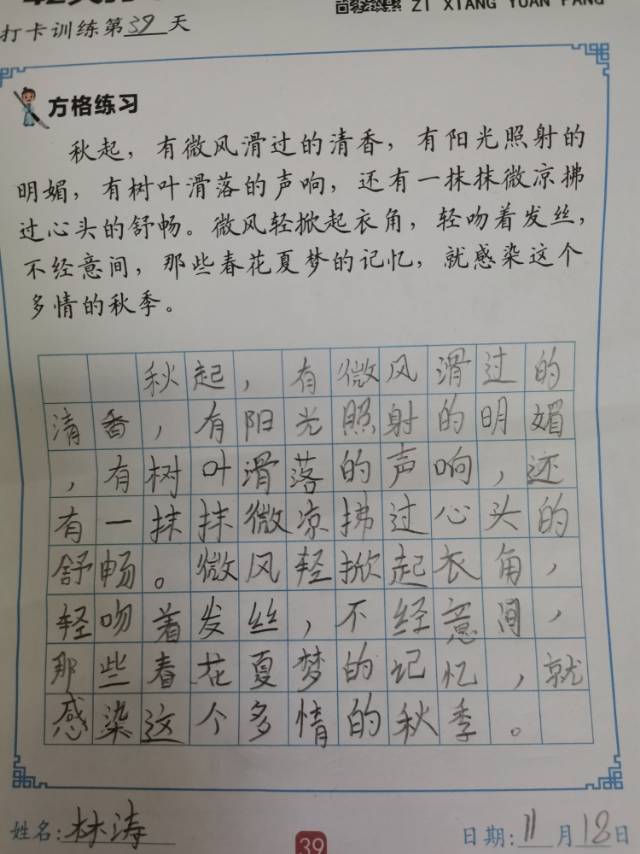 打卡训练第39天
ZI XIANG YUAN FANG
方格练习
秋起，有微风滑过的清香，有阳光照射的
明媚，有树叶滑落的声响，还有一抹抹微凉拂
过心头的舒畅。微风轻掀起衣角，轻吻着发丝，
不经意间，那些春花夏梦的记忆，就感染这个
多情的秋季。
秋起，有微风滑过的
清香，有阳光照射的明媚
，有树叶滑落的声响，还
有一抹抹微凉拂过心头的
舒畅。微风轻掀起衣角，
轻吻着发丝，不经意间，
那些春花夏梦的记忆，就
感染这个多情的秋季。
姓名：林涛
39
日期：11月18日